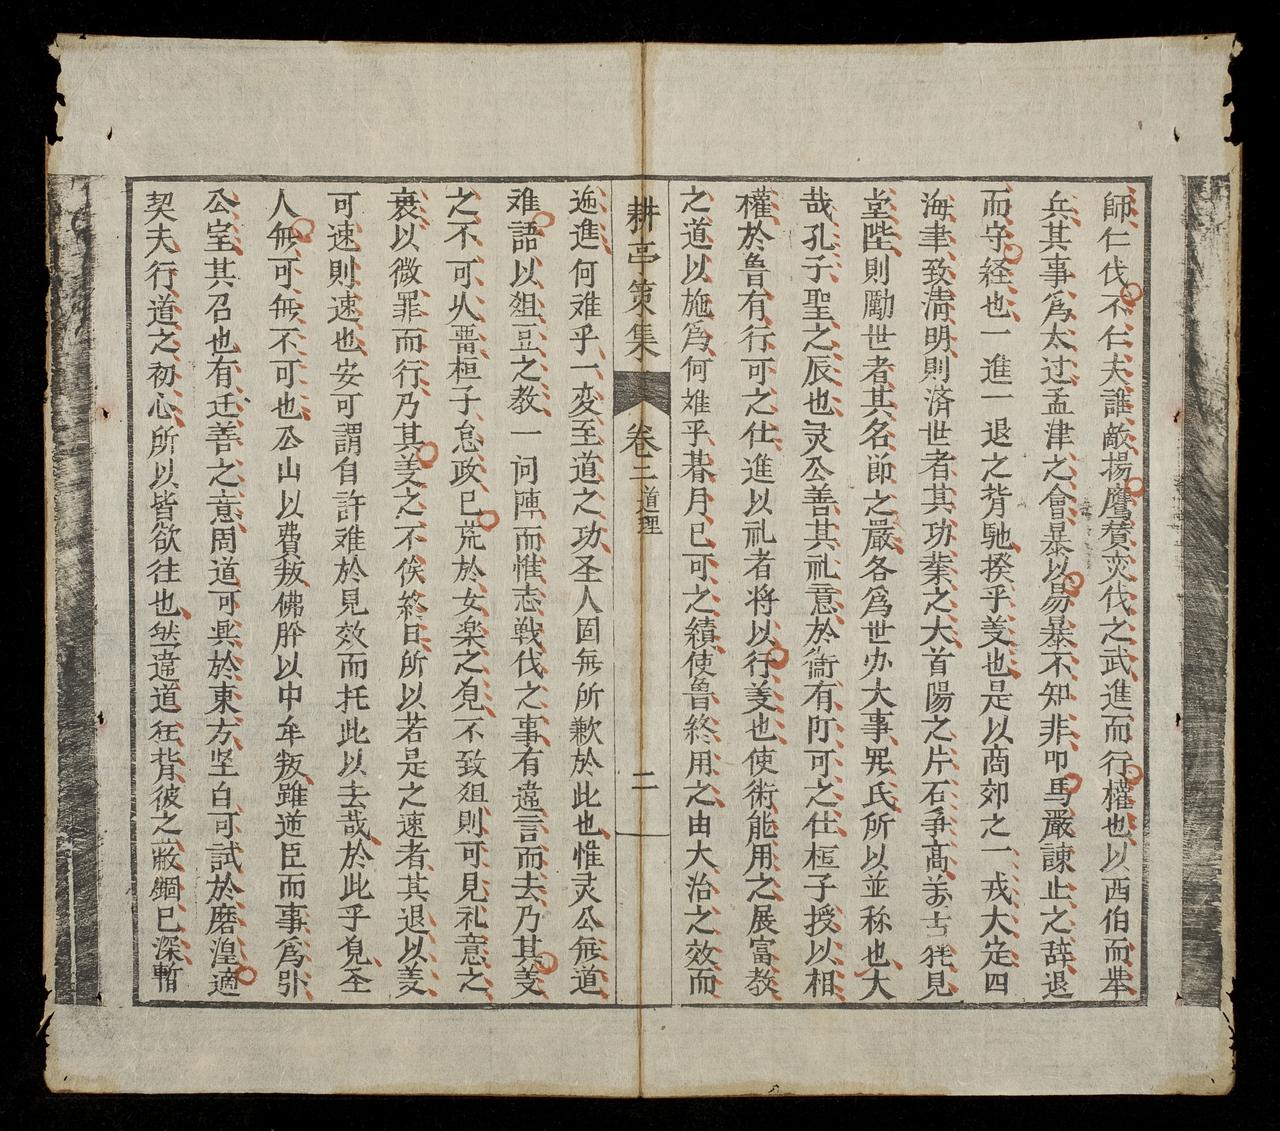 師仁伐不仁夫誰敵揚鷹賛奕伐之武進而行權也以西伯而举
兵其事爲太过孟津之會暴以易暴不知非叩馬嚴諌止之辞退
而守経也一進一退之背馳揆乎义也是以商郊之一戎大定四
海聿致清明則済世者其功業之大首陽之片石争高万古犹見
堂陛則勵世者其名節之嚴各爲世办大事異氏所以並称也大
哉孔子聖之辰也灵公善其礼意於衞有际可之仕桓子授以相
權於魯有行可之仕進以礼者将以行义也使術能用之展富教
之道以施爲何难乎朞月已可之績使魯終用之由大治之效而
耕亭策集 卷二 道理 二
迤進何难乎一変至道之功圣人固無所歉於此也惟灵公無道
难語以爼豆之教一问陣而惟志战伐之事有違言而去乃其义
之不可从畱桓子怠政已荒於女楽之免不致爼則可見礼意之
衰以微罪而行乃其义之不俟終日所以若是之速者其退以义
可速則速也安可謂自許难於見效而托此以去哉於此乎見圣
人無可無不可也公山以費叛佛肸以中牟叛雖逆臣而事爲引
公室其召也有迁善之意周道可興於東方坚白可試於磨湟適
契夫行道之初心所以皆欲往也然違道狂背彼之蔽錮已深暫